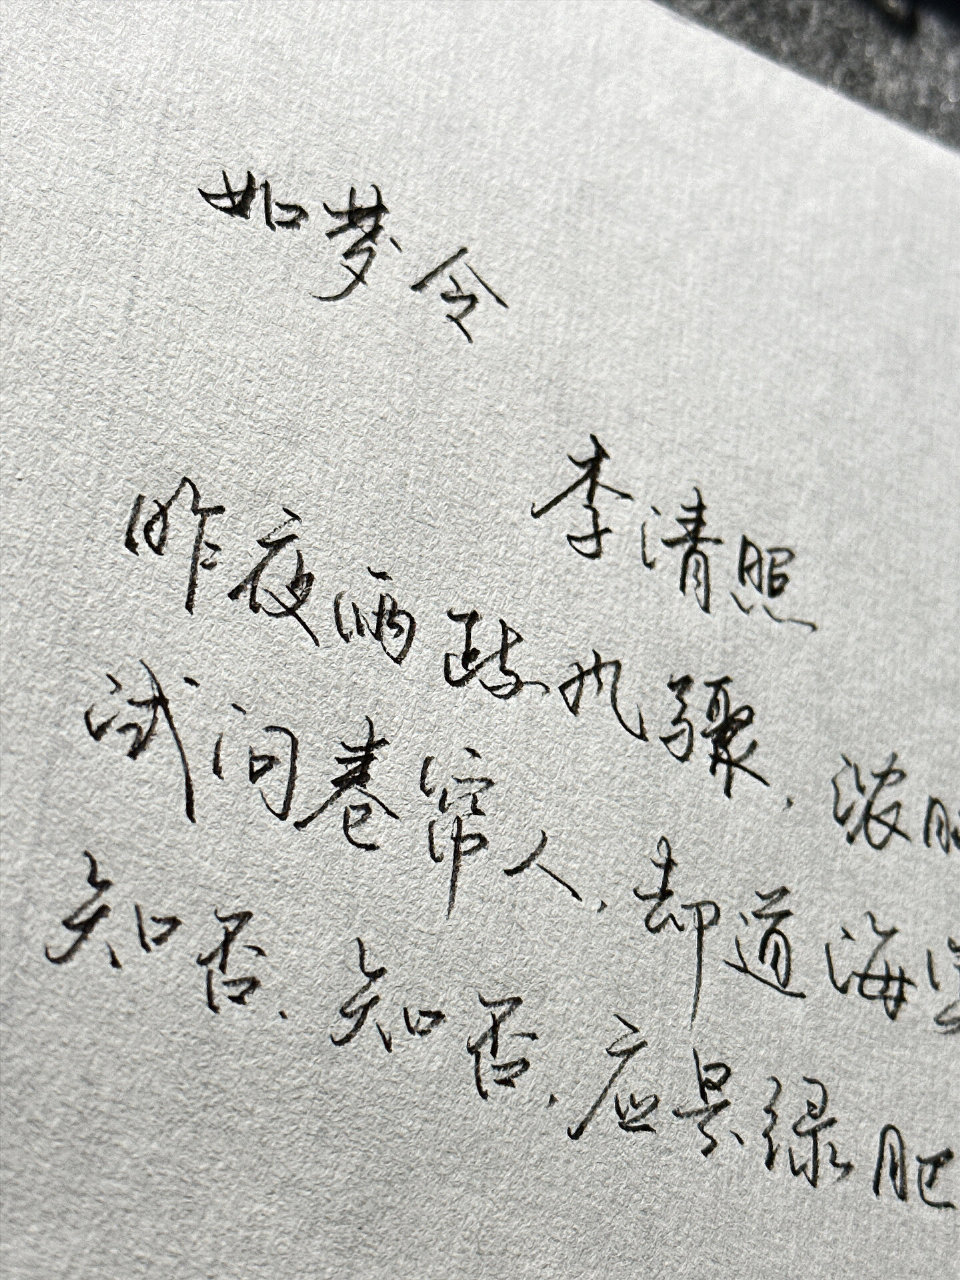 如梦令
李清照
昨夜雨疏风骤，浓
试问卷帘人，却道海
知否，知否，应是绿肥